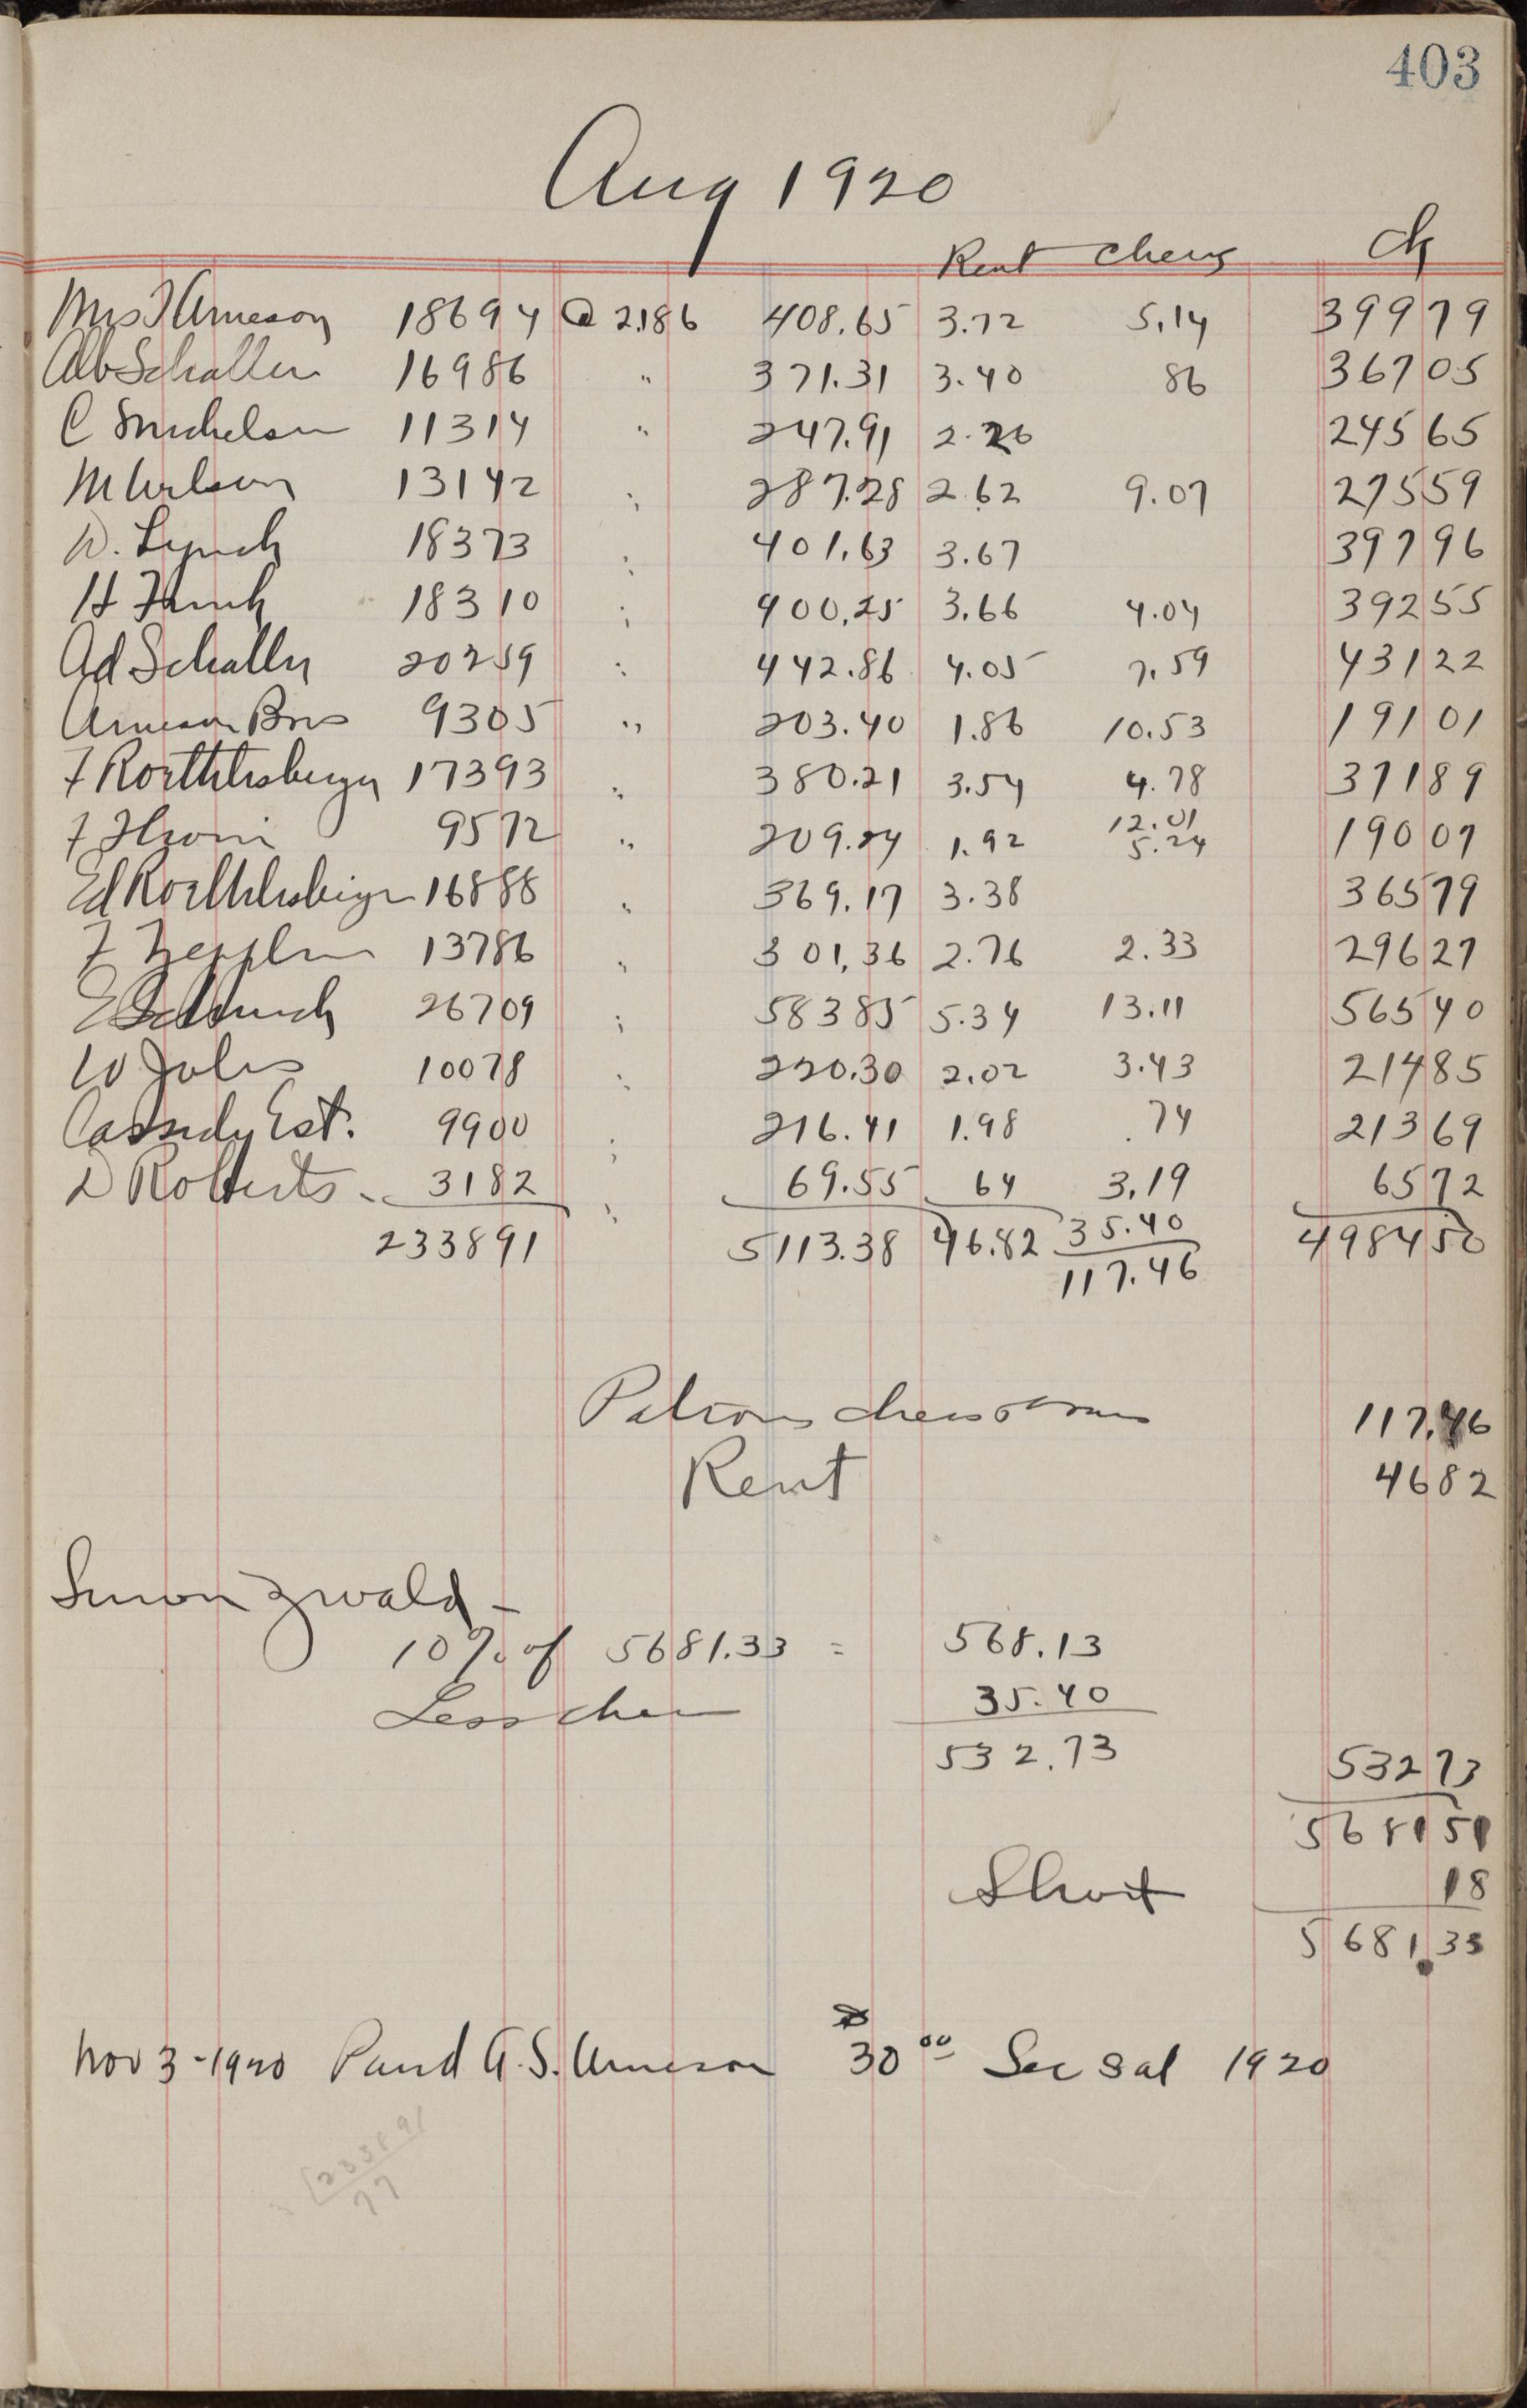 403
Aug 1920
Rent Chees Ck
Mrs J Arneson 18694 @ 2.186 408.65 3.72 5.14 399 79
Alb Schaller 16986 " 371.31 3.40 86 367 05
C Michelson 11314 " 247.91 2.26 245 65
M Wilson 13142 " 287.28 2.62 9.07 275 59
D. Lynch 18373 " 401.63 3.67 397 96
H Funk 18310 " 400.25 3.66 4.04 392 55
Ad Schaller 20259 " 442.86 4.05 7.59 431 22
Arneson Bros 9305 " 203.40 1.86 10.53 191 01
F Roethlisberger 17393 " 380.21 3.54 4.78 371 89
F 9572 " 209.24 1.92 12.01 5.24 190 07
Ed Roethlisberger 16888 " 369.17 3.38 365 79
F Zepplin 13786 " 301.36 2.76 2.33 296 27
E 26709 " 583 85 5.34 13.11 565 40
W Jules 10078 " 220.30 2.02 3.43 214 85
Cassidy Est. 9900 " 216.41 1.98 .74 213 69
D Roberts - 3182 " 69.55 64 3.19 65 72
233891 5113.38 46.82 35.40 4984 50
117.46
Patrons chees 117.46
Rent 46 82
Zwald -
10% of 5681.33 = 568.13
Less chee 35.40
532.73 532 73
5681 51
Short 18
5681.33
Nov 3 - 1920 Paid A. S. Arneson 30 00 Sec Sal 1920
233891
77